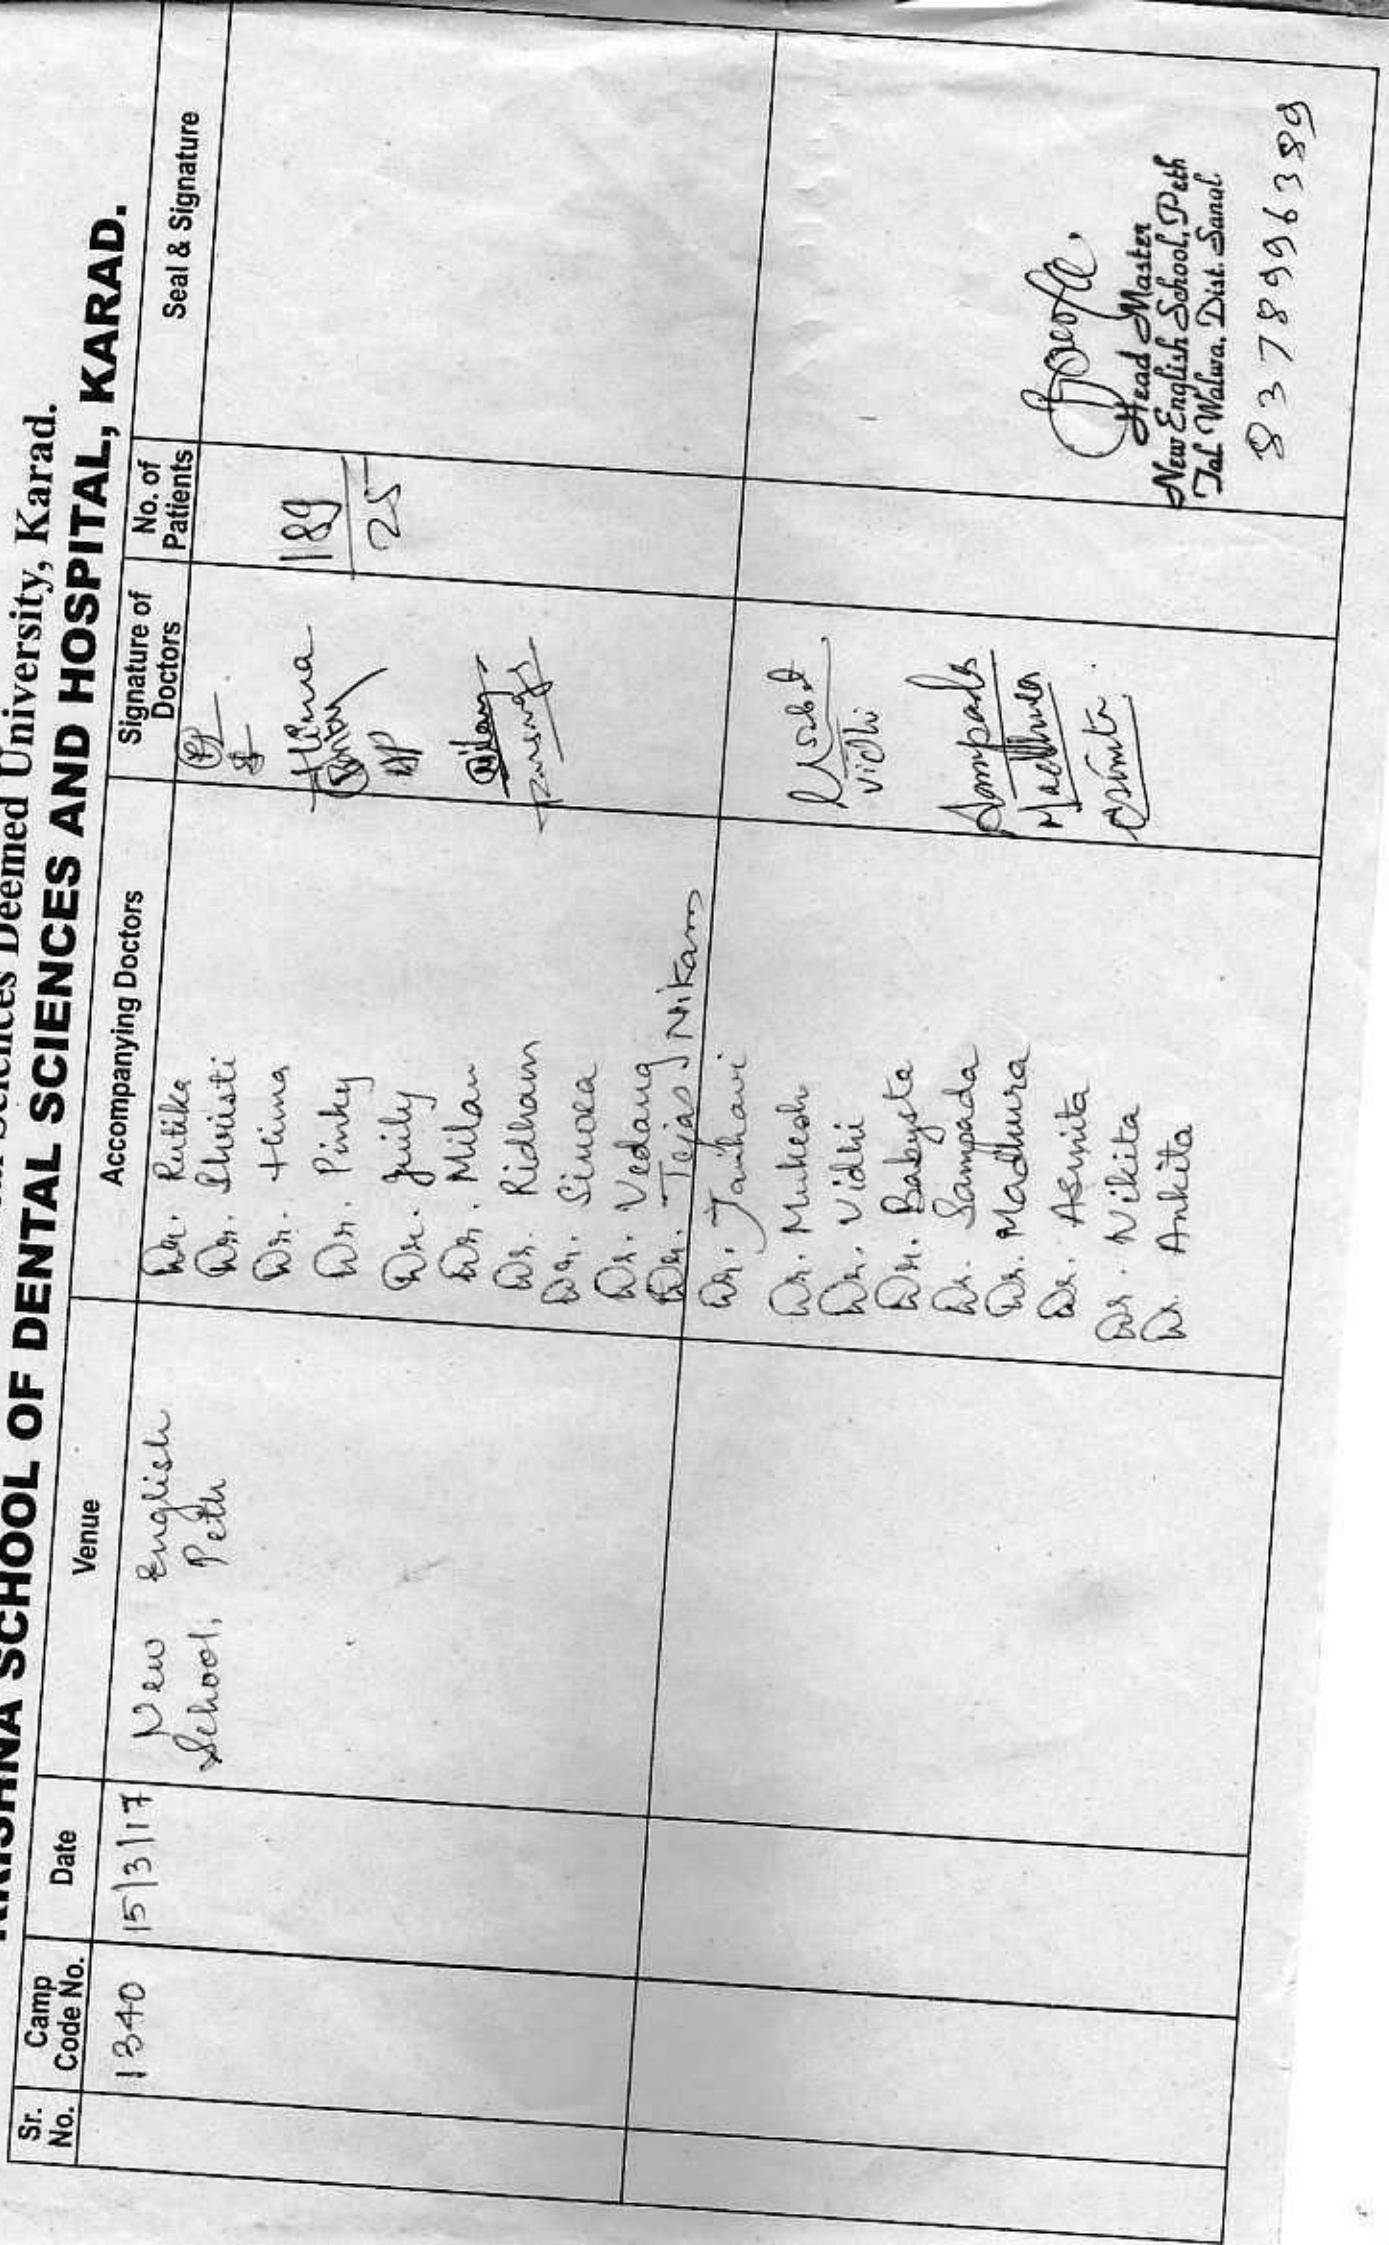 Sciences Deemed University, Karad.
KRISHNA SCHOOL OF DENTAL SCIENCES AND HOSPITAL, KARAD.
Sr. No.
Camp Code No.
Date
Venue
Accompanying Doctors
Signature of Doctors
No. of Patients
Seal & Signature
1340
15/3/17
New English
School, Peth
Dr. Rutika
Dr. Shristi
Dr. Hima
Dr. Pinky
Dr. Juily
Dr. Milan
Dr. Ridham
Dr. Simola
Dr. Vedang
Dr. Tejas Nikam
Hima
Milan
189
25
Dr. Janhavi
Dr. Mukesh
Dr. Vidhi
Dr. Sampada
Dr. Madhura
Dr. Asmita
Dr. Nikita
Dr. Ankita
Vidhi
Sampada
Madhura
Asmita
Head Master
New English School, Peth
Tal. Walwa, Dist. Sangl
8378996389